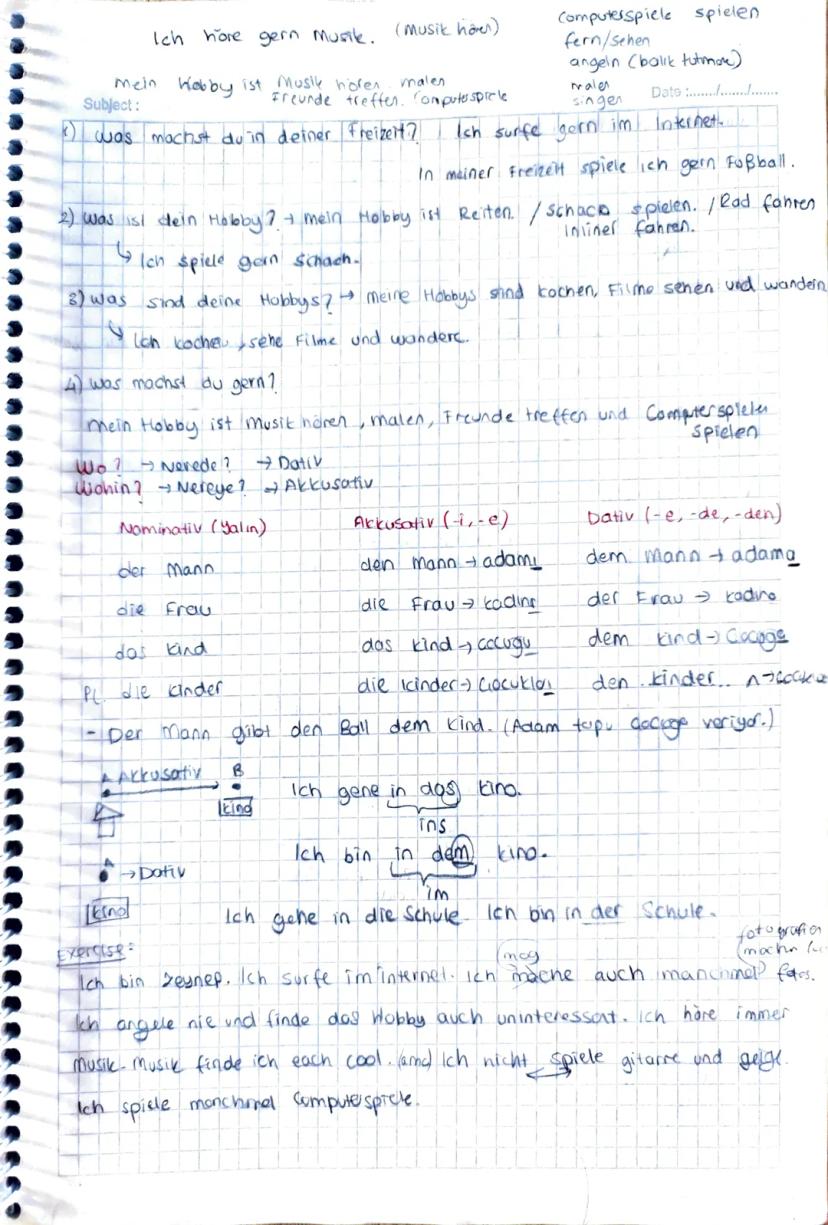 Ich höre gern Musik. (Musik hören)
computerspiele spielen
fern/sehen
angeln (balık tutmak)
malen
singen
Mein Hobby ist Musik hören. malen
Freunde treffen. Computerspiele
Subject: Date :......./......./.......
1) Was machst du in deiner Freizeit? Ich surfe gern im Internet.
In meiner Freizeit spiele ich gern Fußball.
2) Was ist dein Hobby? → mein Hobby ist Reiten. / Schach spielen. / Rad fahren
inliner fahren.
↳ Ich spiele gern Schach.
3) Was sind deine Hobbys? → meine Hobbys sind kochen, Filme sehen und wandern
↳ Ich koche, sehe Filme und wandere.
4) Was machst du gern?
Mein Hobby ist Musik hören, malen, Freunde treffen und Computerspiele
spielen
Wo? → Nerede? → Dativ
Wohin? → Nereye? → Akkusativ
Nominativ (Yalın) Akkusativ (-i, -e) Dativ (-e, -de, -den)
der Mann den Mann → adamı dem Mann → adama
die Frau die Frau → kadını der Frau → kadına
das Kind das Kind → çocuğu dem Kind → Çocuğa
Pl. die Kinder die Kinder → Çocukları den Kinder.. n →
- Der Mann gibt den Ball dem Kind. (Adam topu çocuğa veriyor.)
A Akkusativ B
Kino
Ich gehe in das Kino.
ins
Ich bin in dem Kino.
im
A → Dativ
Kino
Ich gehe in die Schule. Ich bin in der Schule.
Exercise:
fotografieren
mag
Ich bin Zeynep. Ich surfe im internet. Ich mache auch manchmal fotos.
Ich angele nie und finde das Hobby auch uninteressant. Ich höre immer
Musik. Musik finde ich each cool. Ich nicht spiele gitarre und geige.
Ich spiele manchmal Computerspiele.